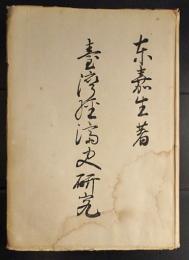 東嘉生著
臺灣經濟史研究